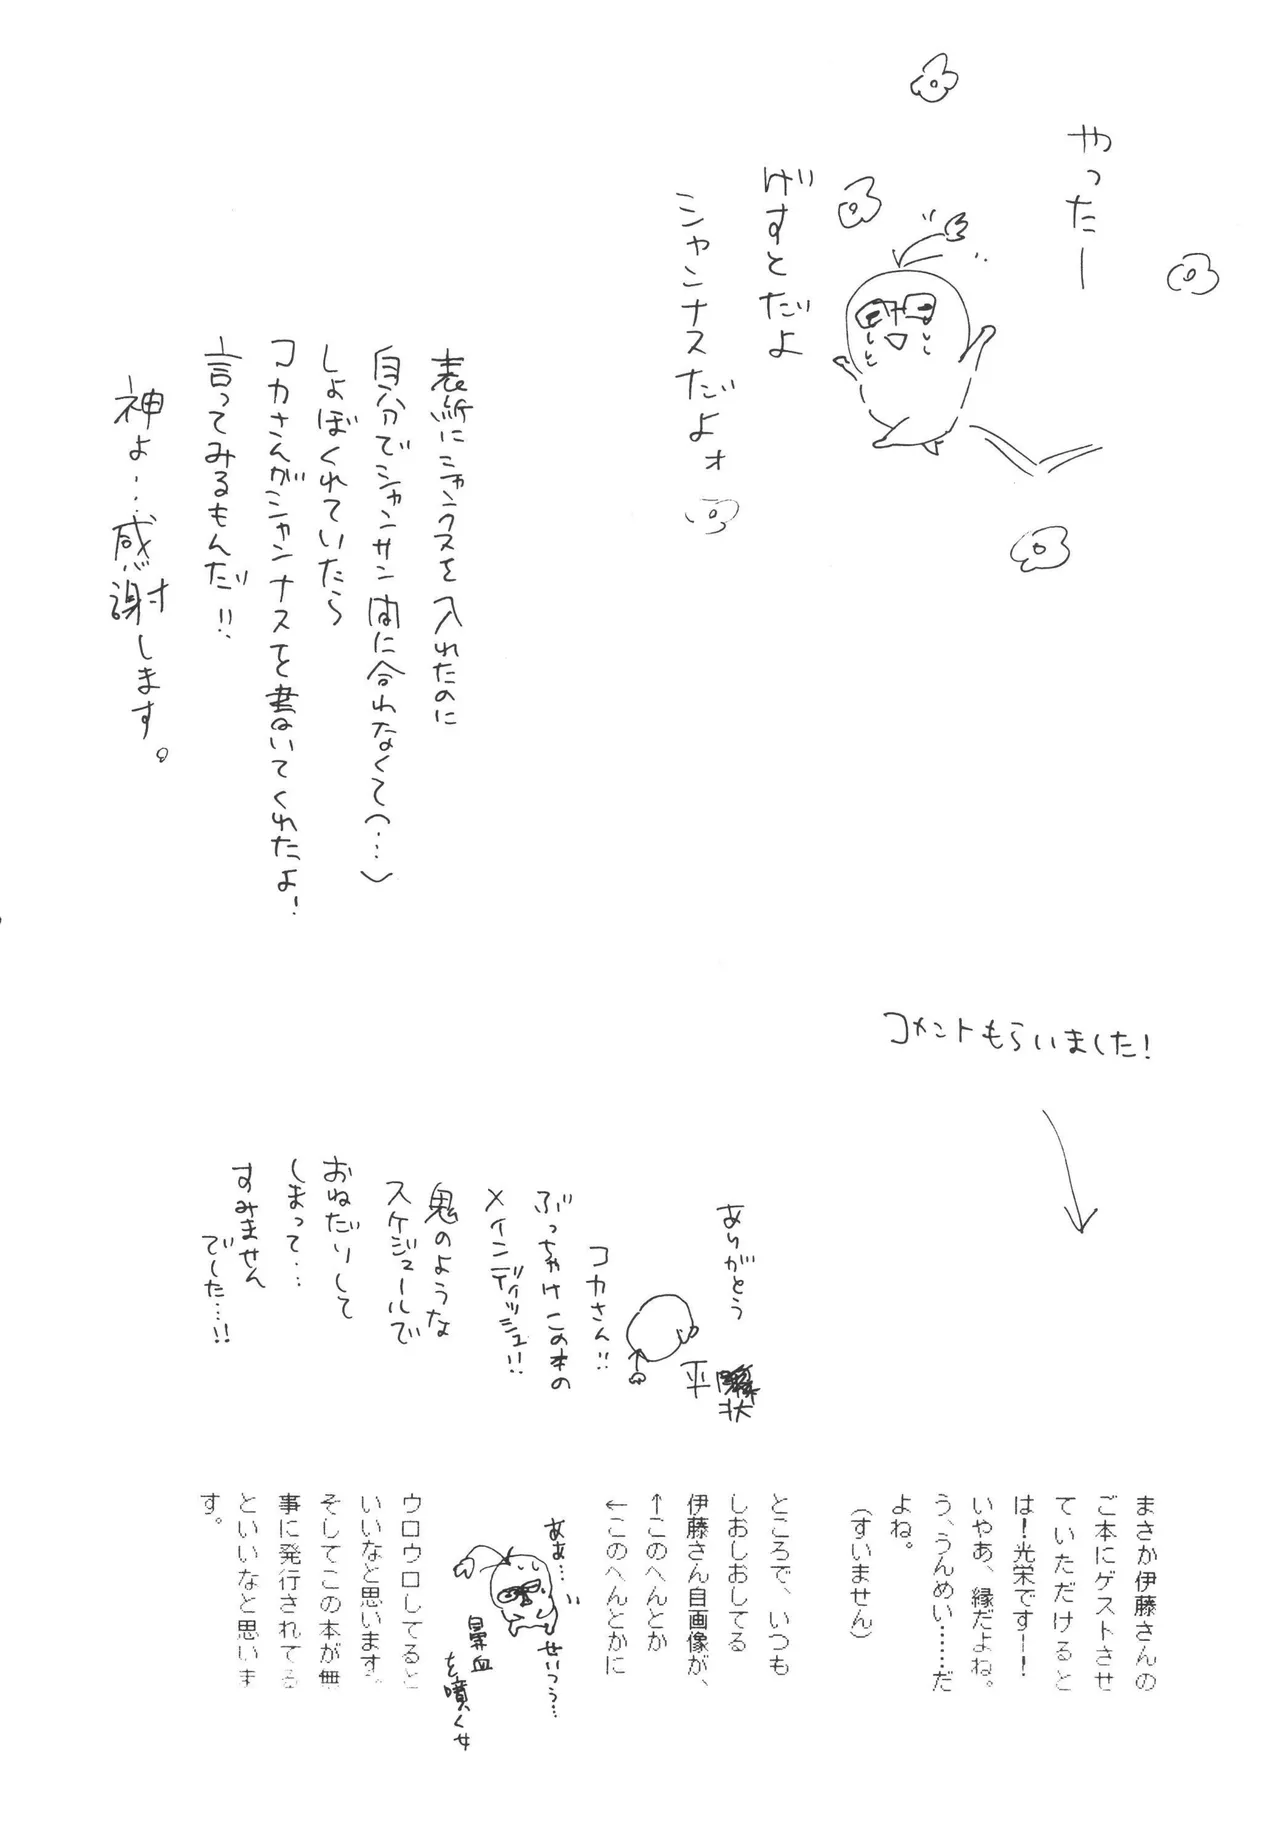 やったー
げすとだよ
シャンナスだよォ
表紙にシャンクスを入れたのに
自分でシャンサン間に合わなくて(…)
しょぼくれていたら
コカさんがシャンナスを書いてくれたよ!
言ってみるもんだ!!
神よ…感謝します。
コメントもらいました!
ありがとう
コカさん!!
ぶっちゃけこの本の
メインディッシュ!!
鬼のような
スケジュールで
おねだりして
しまって…
すみません
でした…!!
平
状
まさか伊藤さんの
ご本にゲストさせ
ていただけると
は!光栄ですー!
いやあ、縁だよね。
う、うんめい……だ
よね。
(すいません)
ところで、いつも
しおしおしてる
伊藤さん自画像が、
↑このへんとか
←このへんとかに
ああ…
せいつう…
鼻血
を噴く女
ウロウロしてると
いいなと思います。
そしてこの本が無
事に発行されてる
といいなと思いま
す。